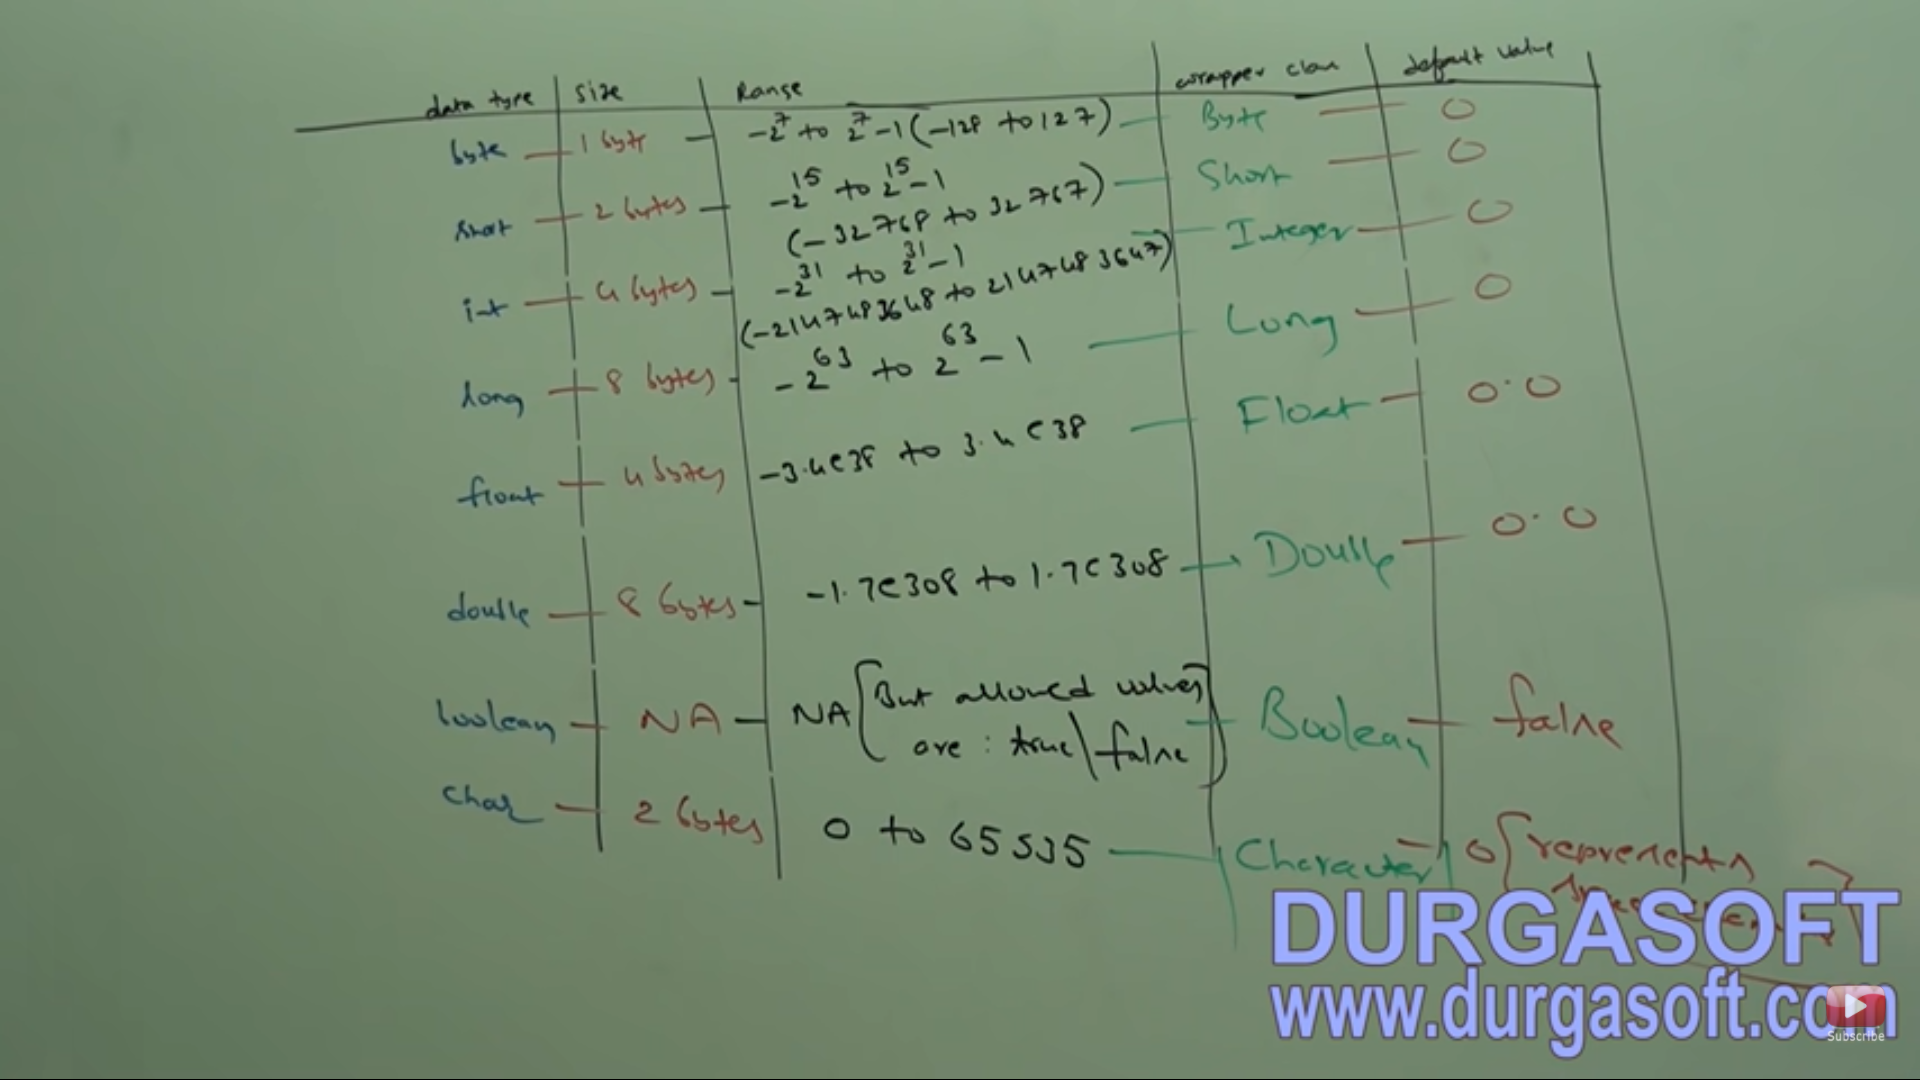 data type size Range wrapper class default value
byte 1 byte -2^7 to 2^7-1 (-128 to 127) Byte 0
short 2 bytes -2^15 to 2^15-1 Short 0
(-32768 to 32767)
int 4 bytes -2^31 to 2^31-1 Integer 0
(-2147483648 to 2147483647)
long 8 bytes -2^63 to 2^63-1 Long 0
float 4 bytes -3.4e38 to 3.4e38 Float 0.0
double 8 bytes -1.7e308 to 1.7e308 Double 0.0
boolean NA NA [But allowed values Boolean false
are : true\false]
char 2 bytes 0 to 65535 Character 0 [represents
DURGASOFT
www.durgasoft.com
Subscribe